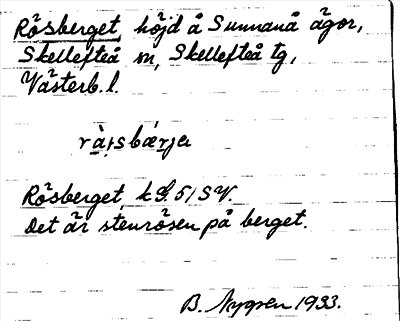 Rösberget, höjd å Sunnanå ägor,
Skellefteå sn, Skellefteå tg,
Västerb. l.
Rösberget, k G. 51 SV.
Det är stenrösen på berget.
B. Nygren 1933.